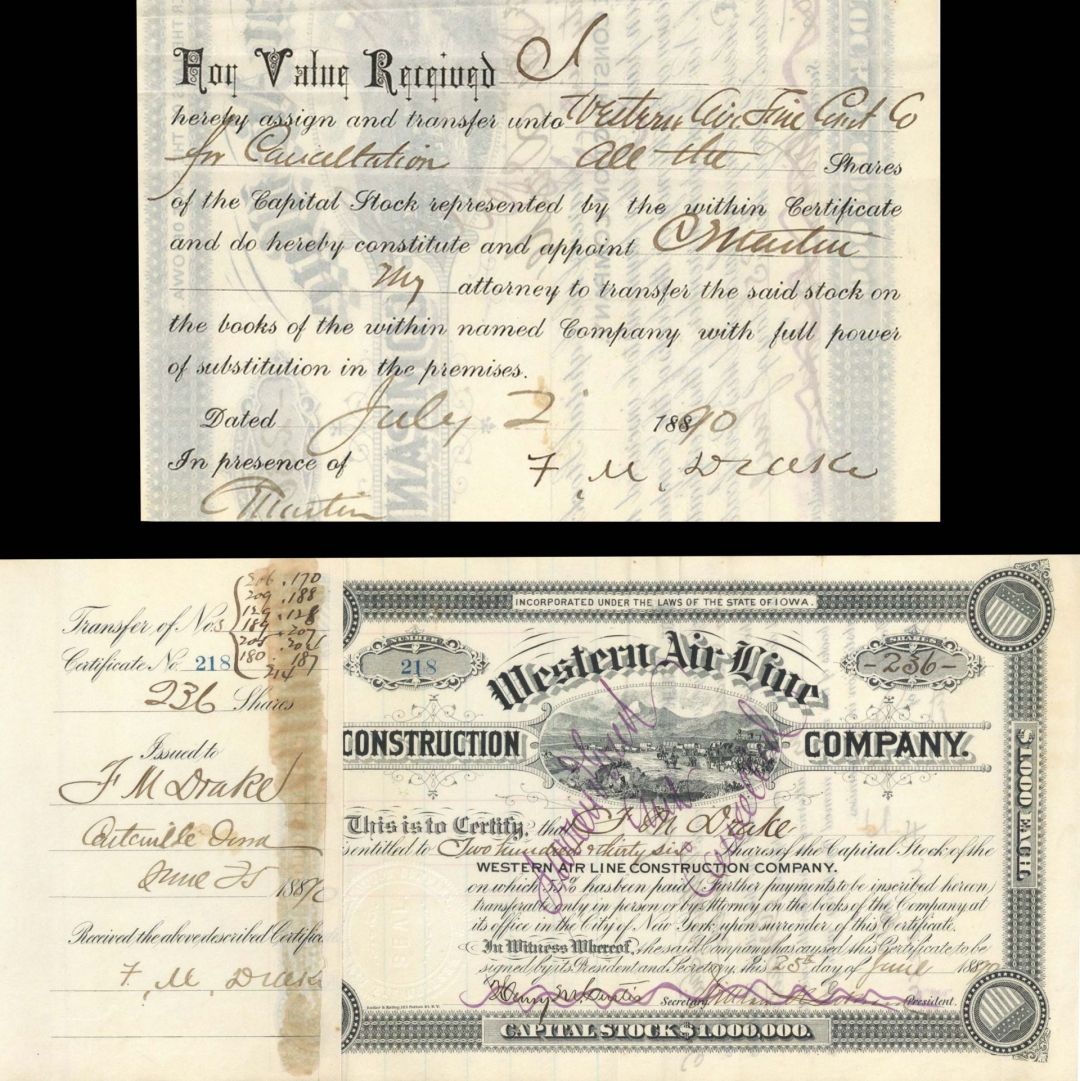 For Value Received I
hereby assign and transfer unto Western Air Line Const Co
for Cancellation All the Shares
of the Capital Stock represented by the within Certificate
and do hereby constitute and appoint C Martin
my attorney to transfer the said stock on
the books of the within named Company with full power
of substitution in the premises.
Dated July 2 18890
In presence of F. M. Drake
C Martin
Transfer of Nos
206 . 170
209 . 188
129 . 128
189 . 207
180 . 187
214
Certificate No. 218
236 Shares
Issued to
F M Drake
Centerville Iowa
June 25 1890
Received the above described Certificate
F. M. Drake
INCORPORATED UNDER THE LAWS OF THE STATE OF IOWA.
NUMBER
218
SHARES
-236-
Western Air Line
CONSTRUCTION COMPANY.
$1,000 EACH.
This is to Certify, that F. M. Drake
is entitled to Two hundred & thirty six Shares of the Capital Stock of the
WESTERN AIR LINE CONSTRUCTION COMPANY.
on which 35% has been paid (Further payments to be inscribed hereon)
transferable only in person or by Attorney on the books of the Company at
its office in the City of New York, upon surrender of this Certificate.
In Witness Whereof, the said Company has caused this Certificate to be
signed by its President and Secretary, this 25th day of June 1890
Henry M. Curtis Secretary. President.
CAPITAL STOCK $1,000,000.